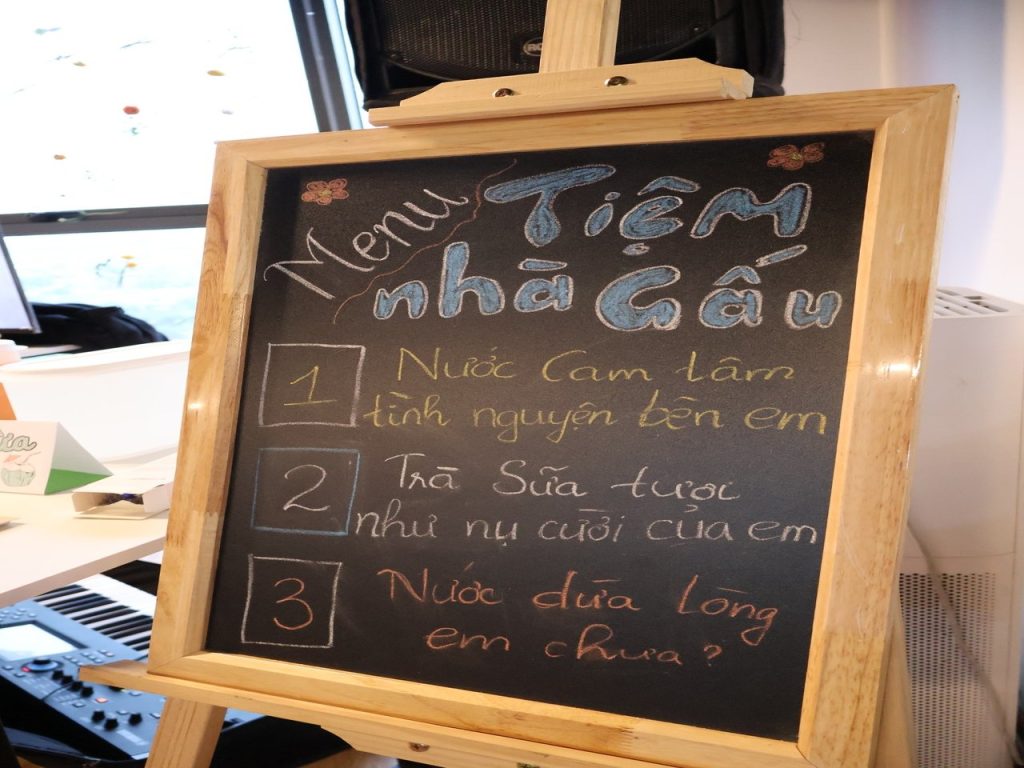 Menu
Tiệm
nhà Gấu
1
Nước Cam tâm
tình nguyện bên em
2
Trà Sữa tươi
như nụ cười của em
3
Nước dừa lòng
em chưa?